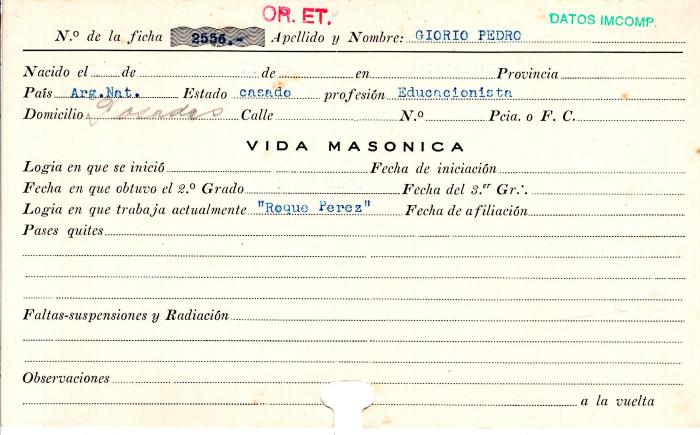 OR. ET.
DATOS IMCOMP.
N.º de la ficha 2556.- Apellido y Nombre: GIORIO PEDRO
Nacido el de de en Provincia
País Arg.Nat. Estado casado profesión Educacionista
Domicilio Posadas Calle N.º Pcia. o F. C.
VIDA MASONICA
Logia en que se inició Fecha de iniciación
Fecha en que obtuvo el 2.º Grado Fecha del 3.er Gr∴
Logia en que trabaja actualmente "Roque Perez" Fecha de afiliación
Pases quites
Faltas-suspensiones y Radiación
Observaciones
a la vuelta